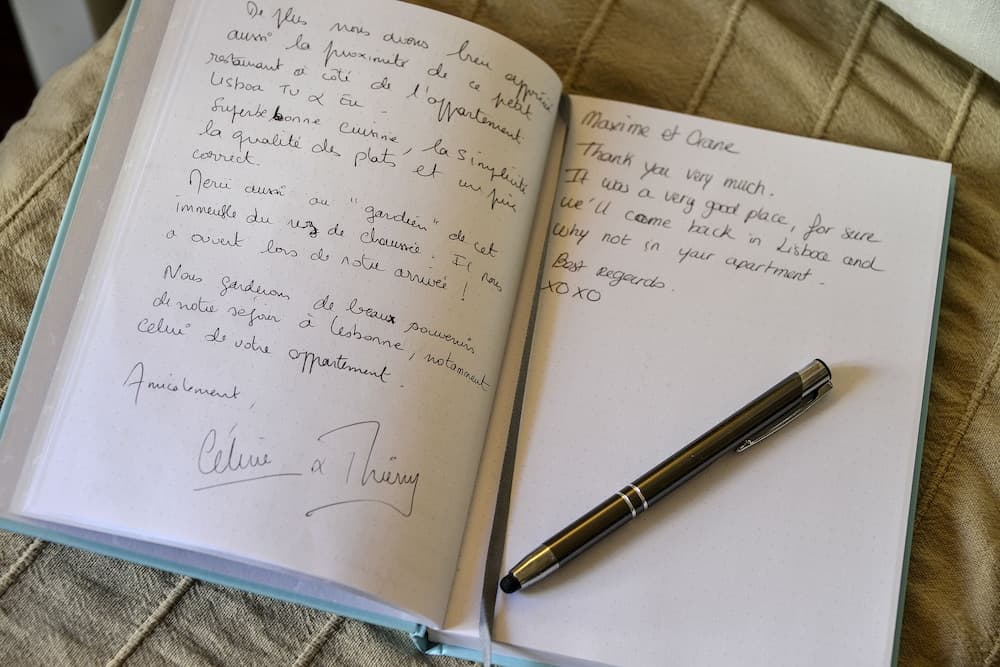 De plus nous avons bien apprécié
aussi la proximité de ce petit
restaurant à côté de l'appartement
Lisboa Tu & Eu.
Superbe bonne cuisine, la simplicité
la qualité des plats et un prix
correct.
Merci aussi au "gardien" de cet
immeuble du rez de chaussée. Il nous
a ouvert lors de notre arrivée !
Nous garderons de beaux souvenirs
de notre séjour à Lisbonne, notamment
celui de votre appartement.
Amicalement,
Céline & Thierry
Maxime et Orane
Thank you very much.
It was a very good place, for sure
we'll come back in Lisboa and
why not in your apartment.
Best regards.
XOXO